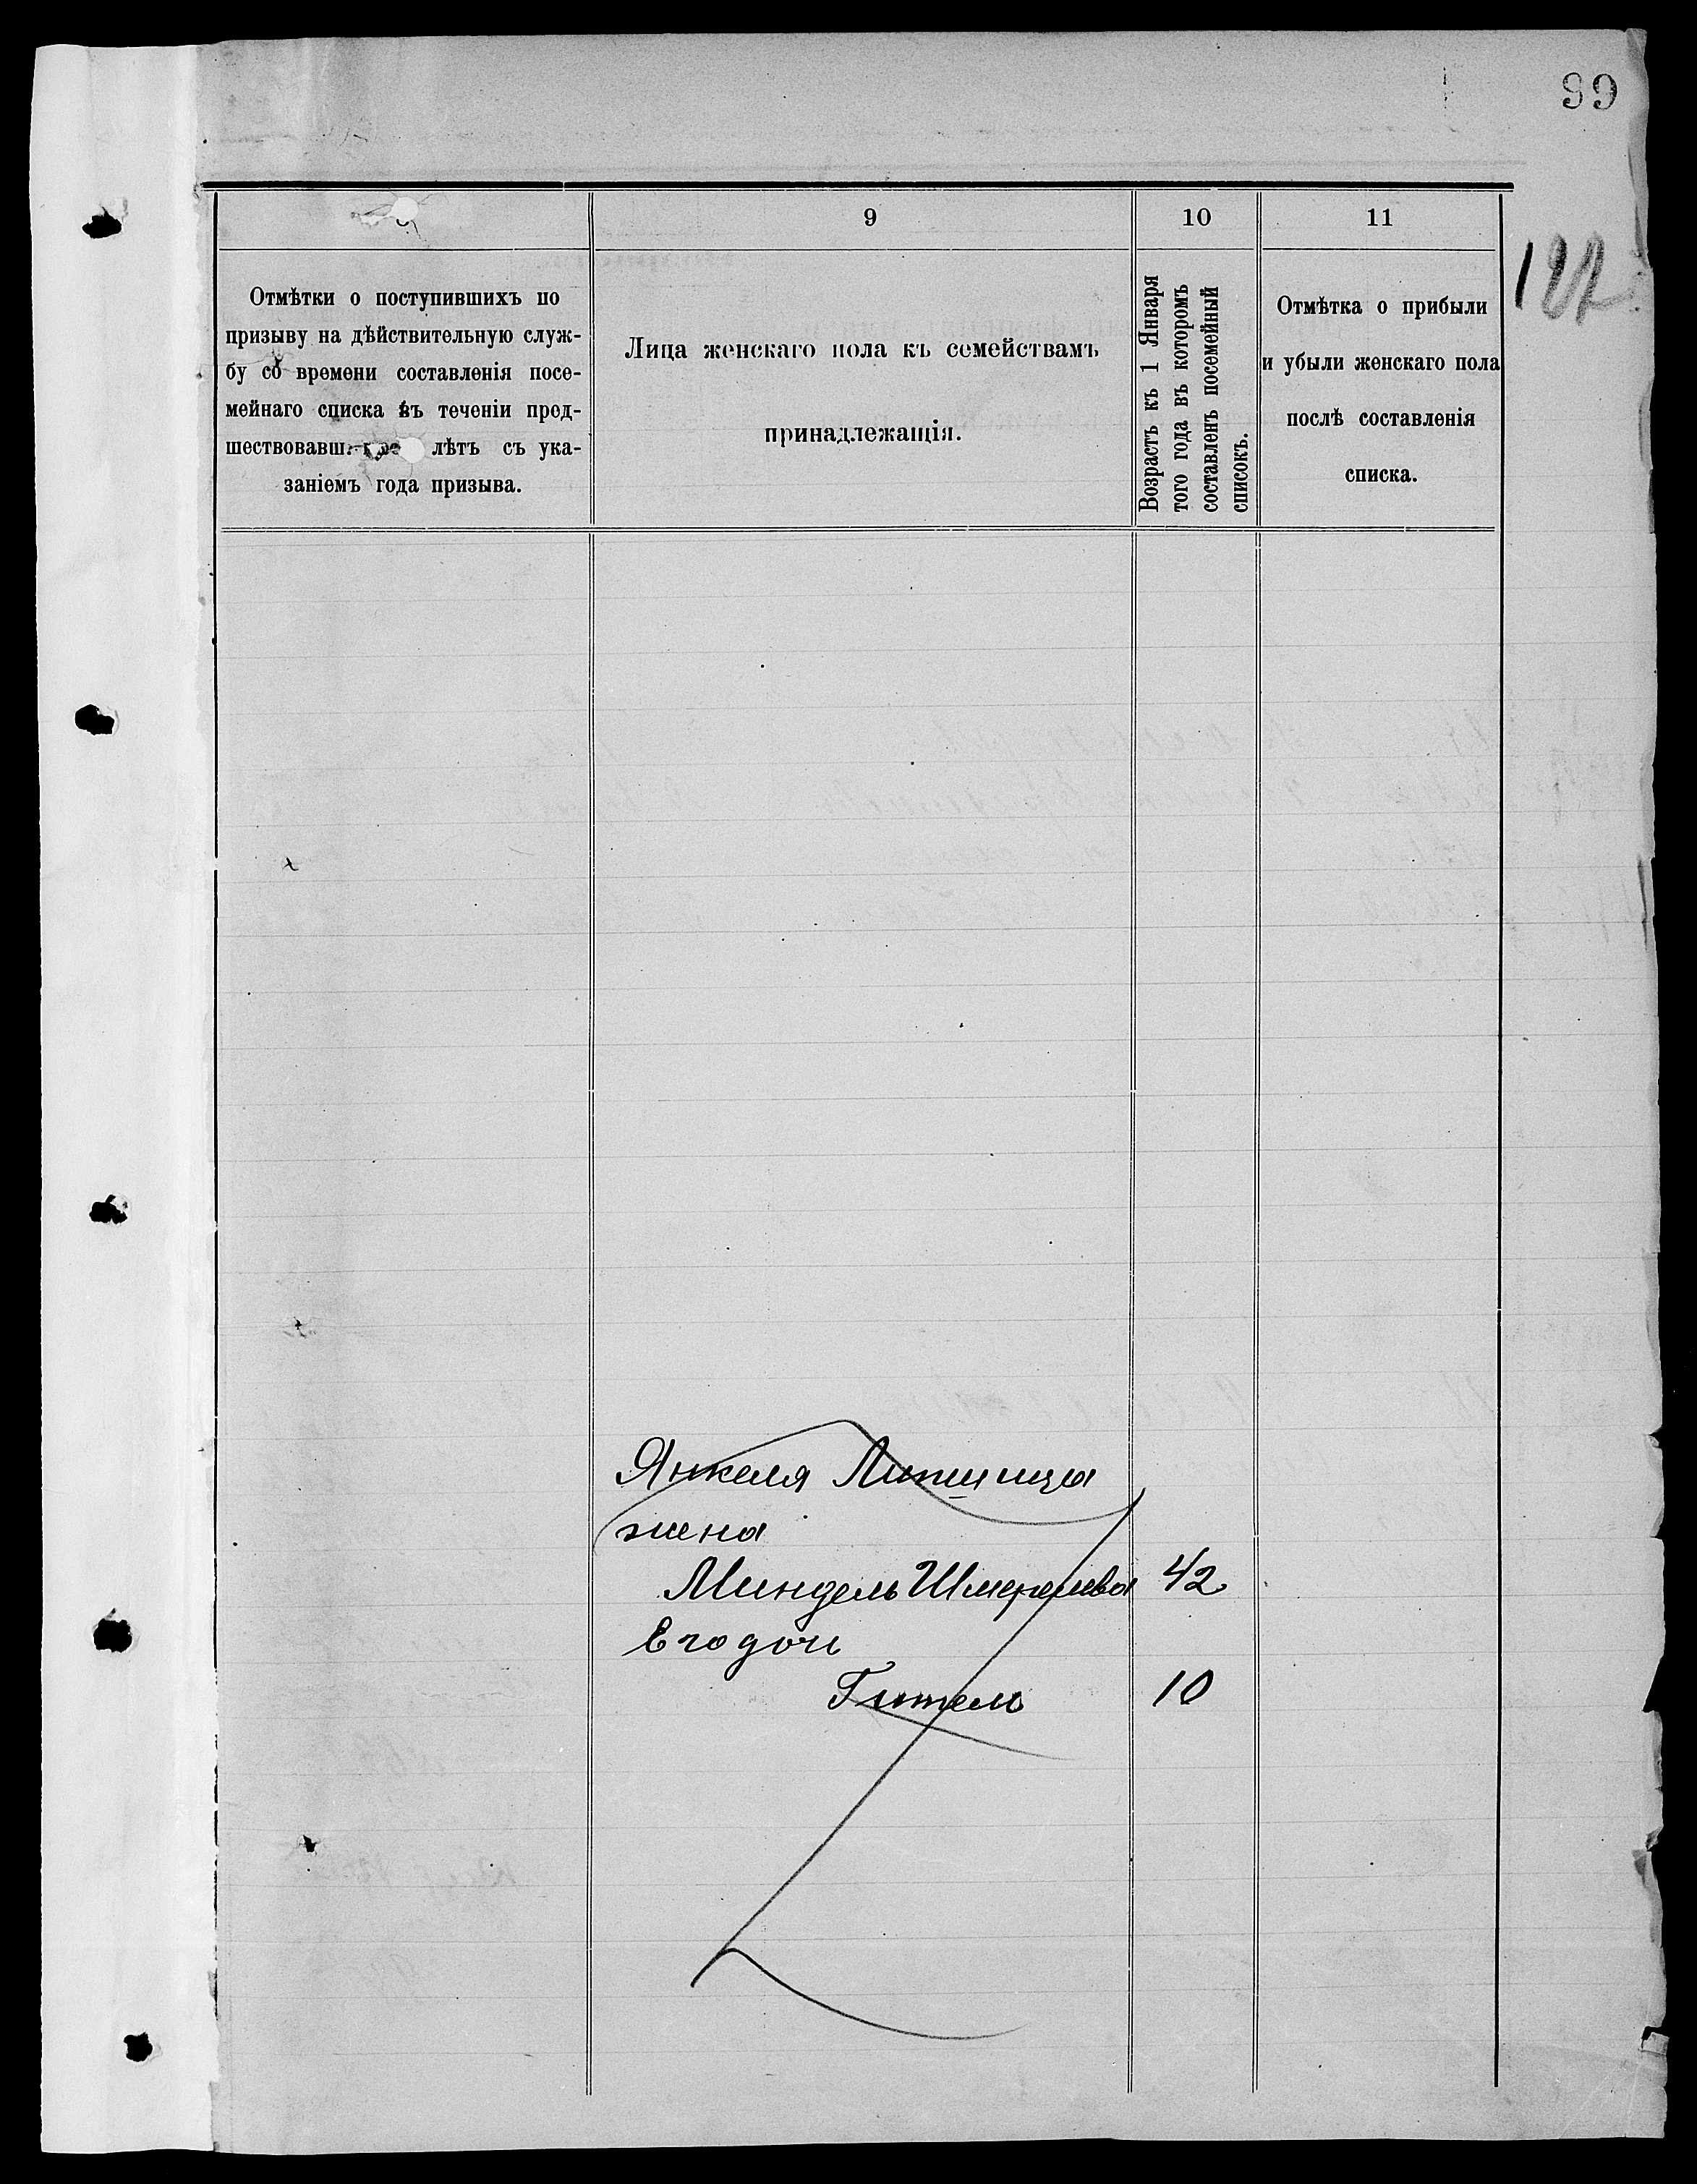 99
9
10
11
182
Отмѣтки о поступившихъ по
призыву на дѣйствительную служ-
бу со времени составленія посе-
мейнаго списка въ теченіи пред-
шествовавш лѣтъ съ ука-
заніемъ года призыва.
Лица женскаго пола къ семействамъ
принадлежащія.
Возрастъ къ 1 Января
того года въ которомъ
составленъ посемейный
списокъ.
Отмѣтка о прибыли
и убыли женскаго пола
послѣ составленія
списка.
Янкеля Липшица
жена
Миндель Шмерелева 42
Его дочь
Гитель 10